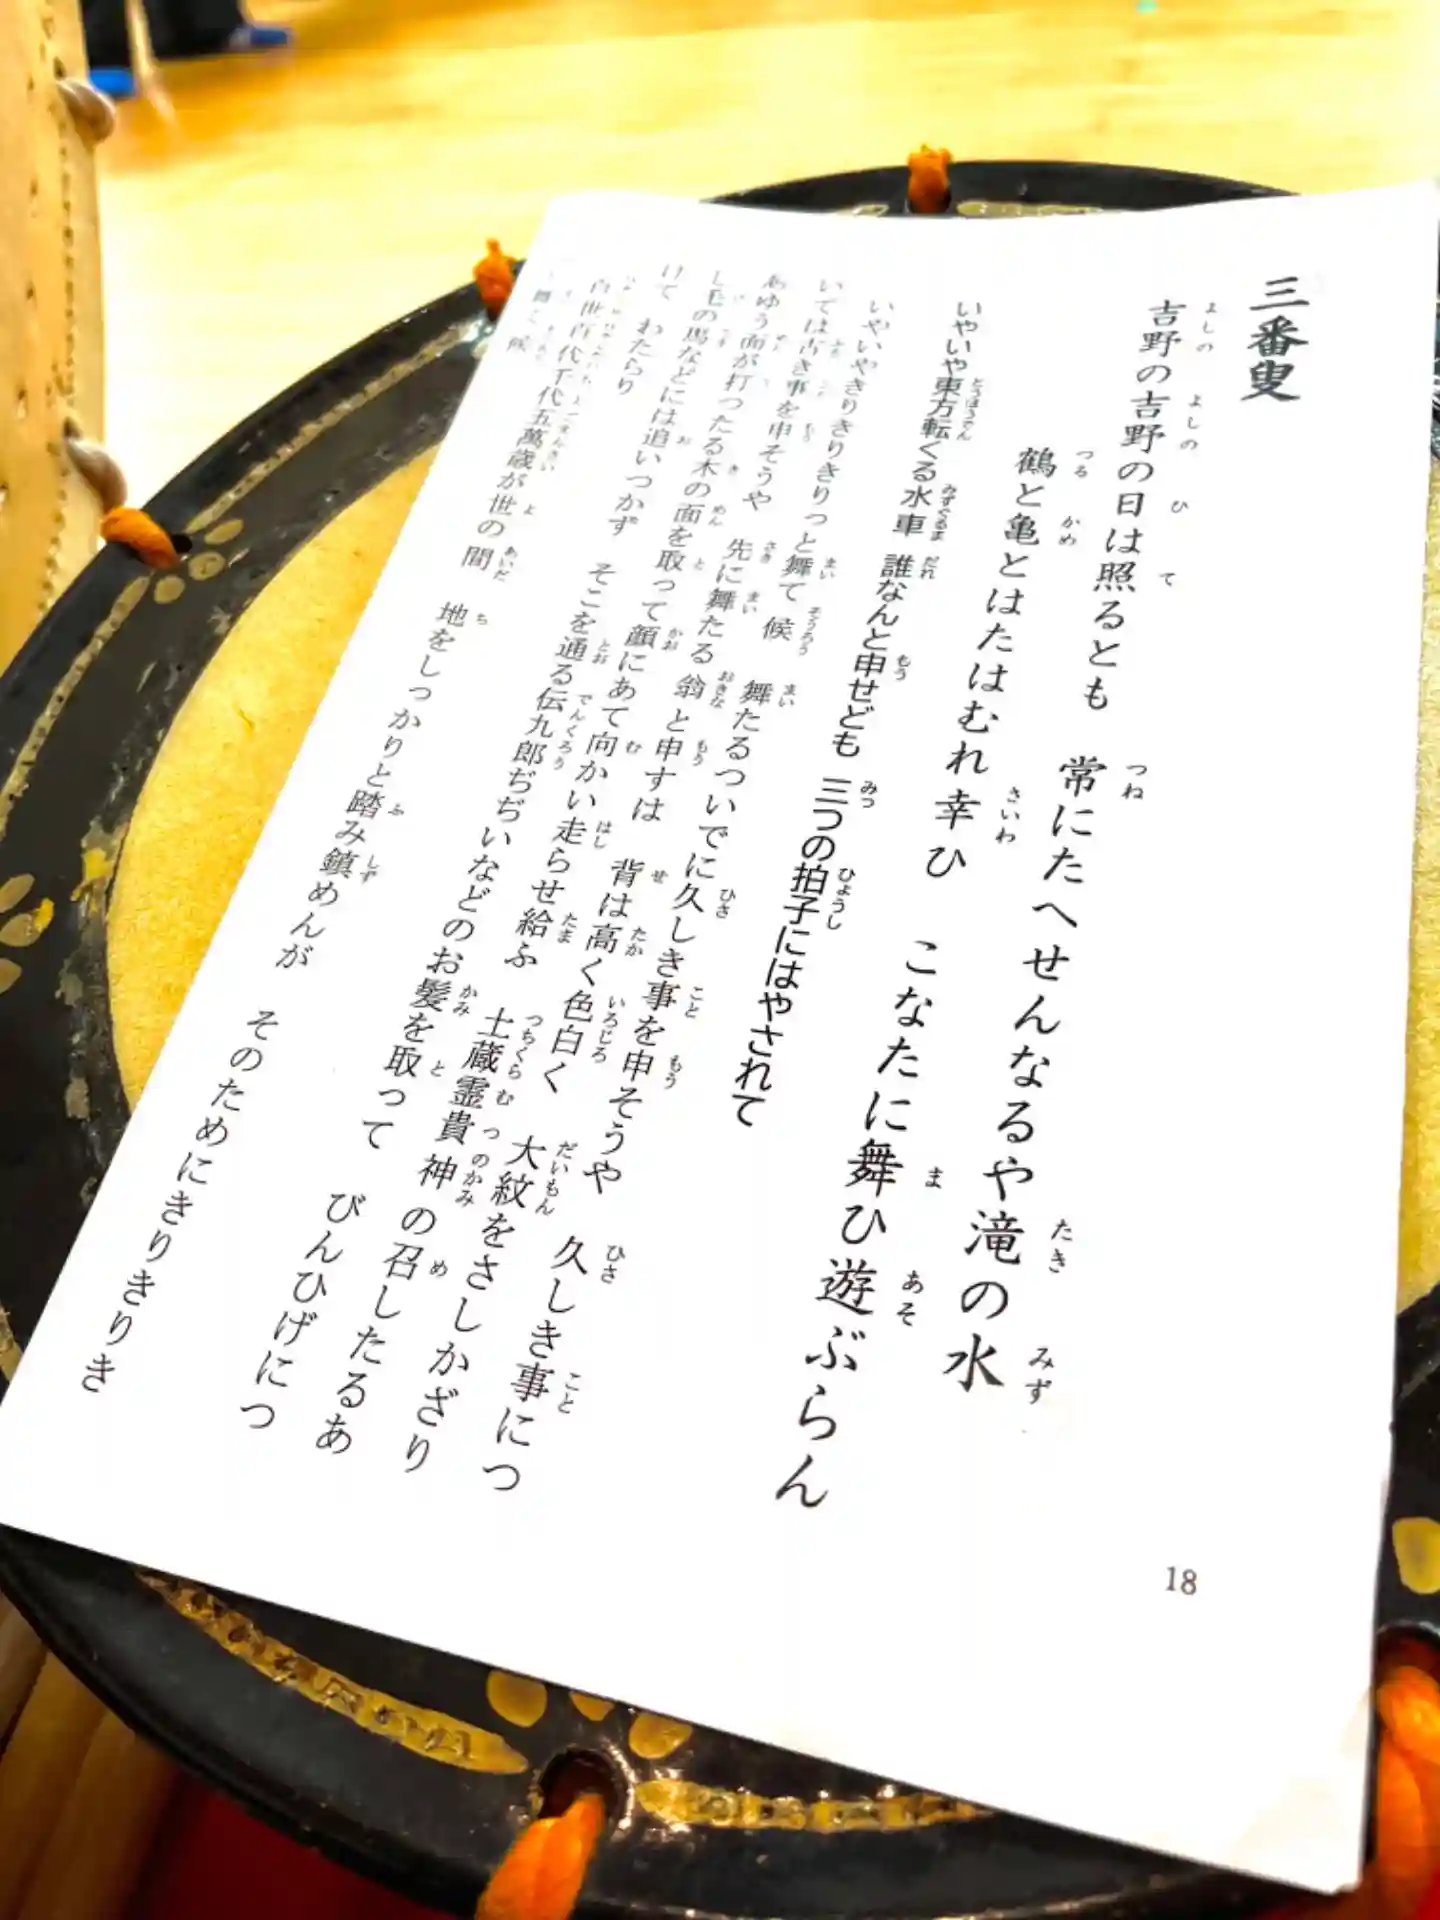 三番叟
吉野の吉野の日は照るとも 常にたへせんなるや滝の水
鶴と亀とはたはむれ幸ひ こなたに舞ひ遊ぶらん
いやいや東方転くる水車 誰なんと申せども 三つの拍子にはやされて
いやいやきりきりきりきりっと舞て候 舞たるついでに久しき事を申そうや 久しき事につ
いては古き事を申そうや 先に舞たる翁と申すは 背は高く色白く 大紋をさしかざり
あゆう面が打ったる木の面を取って顔にあて向かい走らせ給ふ 土蔵霊貴神の召したるあ
し毛の馬などには追いつかず そこを通る伝九郎ぢぢいなどのお髪を取って びんひげにつ
けて わたらり
百世百代千代五萬歳が世の間 地をしっかりと踏み鎮めんが そのためにきりきりき
舞て候
18